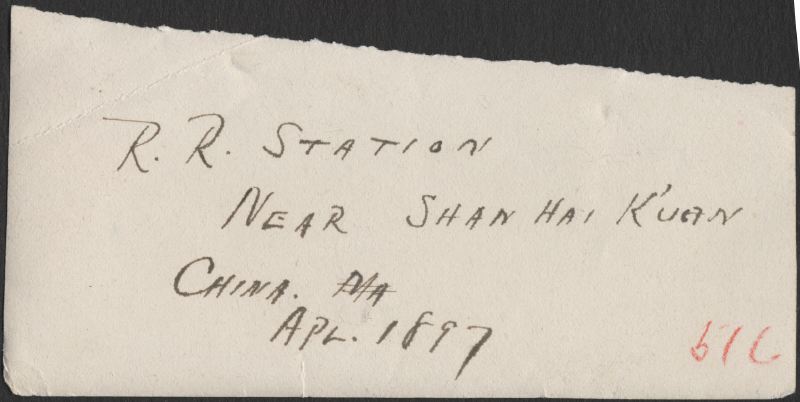 R. R. STATION
NEAR SHAN HAI K'UAN
CHINA. MA
APL. 1897